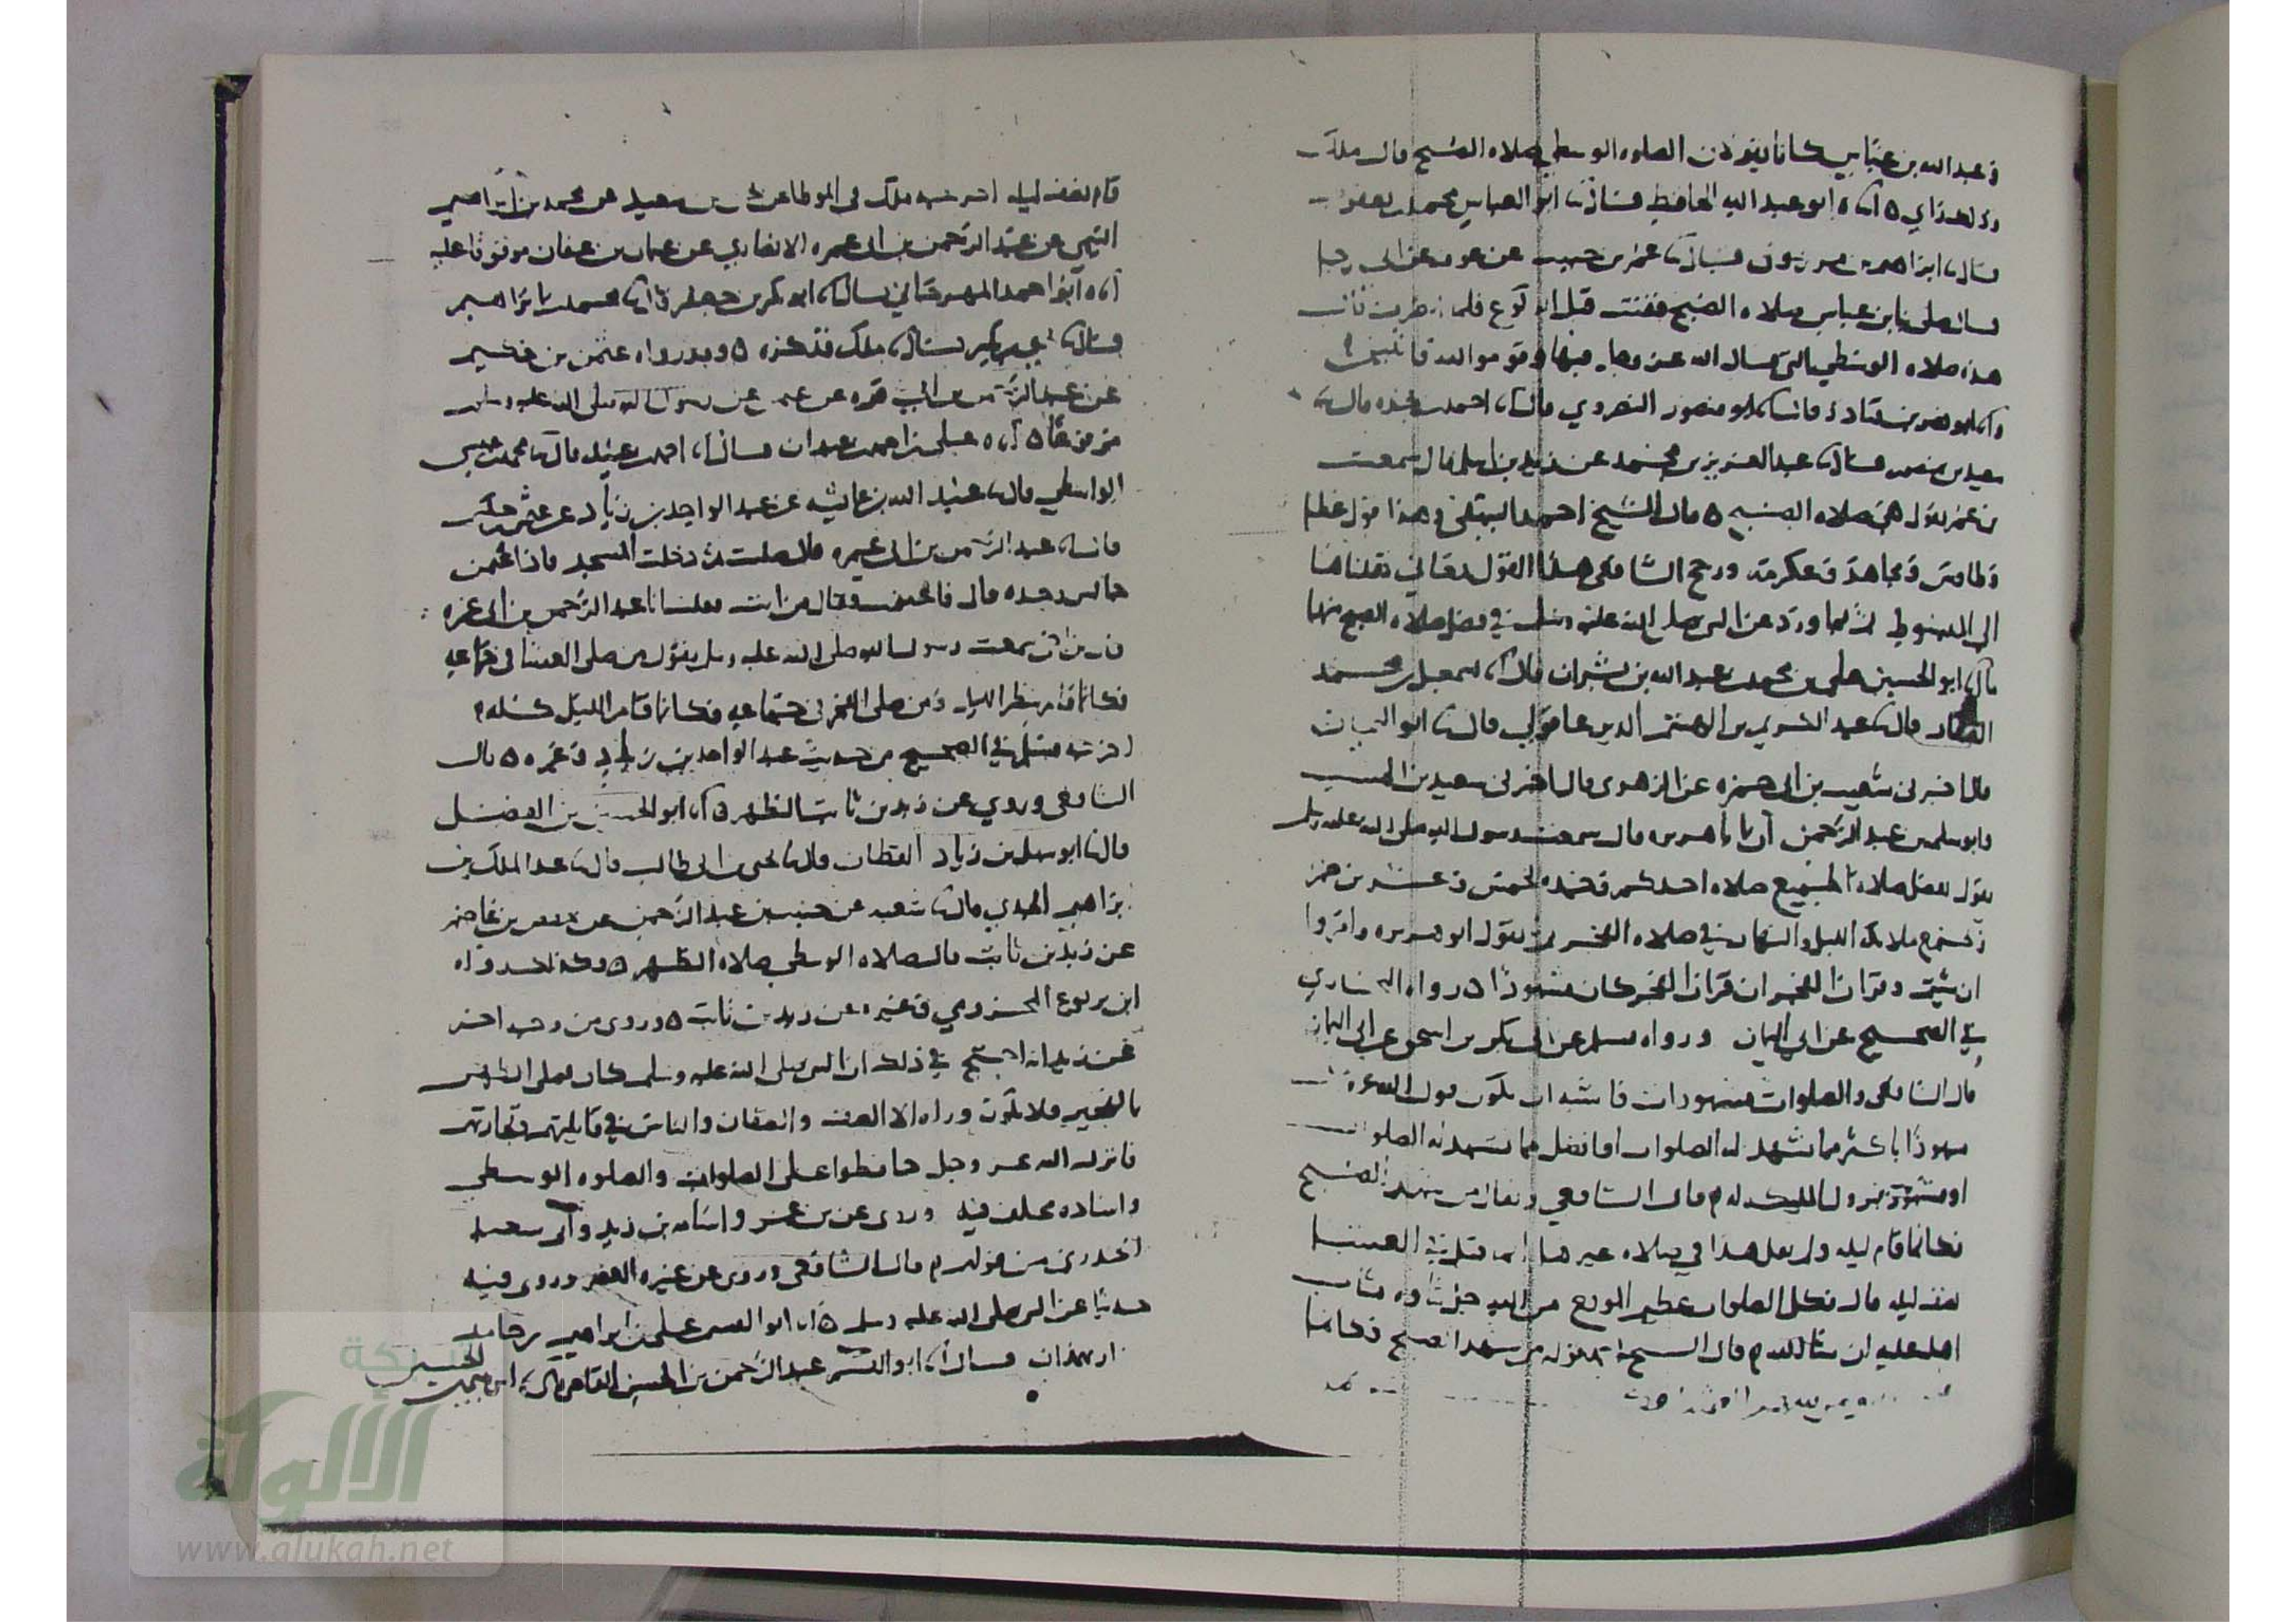 وعبد الله بن عباس كانا يقولان الصلوه الوسطى صلاه الصبح قال ملك
وذلك رايي ٥ انا ابو عبد الله الحافظ قال نا ابو العباس محمد بن يعقوب
قال نا ابراهيم بن مرزوق قال نا عمر بن حبيب عن عوف عن ابي رجا
قال صلى بنا ابن عباس صلاه الصبح فقنت قبل الركوع فلما انصرف قال
هذه صلاه الوسطى التي قال الله عز وجل فيها وقوموا لله قانتين
وانا ابو نصر بن قتادة قال انا ابو منصور النضروي قال نا احمد بن نجده قال نا
سعيد بن منصور قال نا عبد العزيز بن محمد عن زيد بن اسلم قال سمعت
بن عمر يقول هي صلاه الصبح ٥ قال الشيخ احمد البيهقي وهذا قول عطا
وطاوس ومجاهد وعكرمة ورجح الشافعي هذا القول بمعاني نقلناها
الى المبسوط ثم بما ورد عن النبي صلى الله عليه وسلم في فضل صلاه الصبح منها
نا ابو الحسين علي بن محمد بن عبد الله بن بشران قال انا اسمعيل بن محمد
الصفار قال نا عبد الكريم بن الهيثم الدير عاقولي قال نا ابو اليمان
قال اخبرني شعيب بن ابي حمزه عن الزهري قال اخبرني سعيد بن المسيب
وابو سلمه بن عبد الرحمن ان ابا هريره قال سمعت رسول الله صلى الله عليه وسلم
يقول تفضل صلاه الجميع صلاه احدكم وحده بخمس وعشرين جزء
وتجتمع ملائكه الليل والنهار في صلاه الفجر ثم يقول ابو هريره واقروا
ان شيتم وقران الفجر ان قران الفجر كان مشهودا ٥ رواه البخاري
في الصحيح عن ابي اليمان ورواه مسلم عن ابي بكر بن اسحق عن ابي اليمان
قال الشافعي والصلوات مشهودات فاشبه ان يكون قول الله عز
مشهودا باكثر مما تشهد به الصلوات او افضل مما تشهد به الصلوات
او مشهود بنزول الملائكه له قال الشافعي ويقال من شهد الصبح
فكانما قام ليله ولم يقل هذا في صلاه غيرها انما قيل في العشا
نصف ليله قال فكل الصلوات عظيم الموقع من الله جل ثناوه
اهله عليه ان شا الله قال الشيخ اما قوله من شهد الصبح فكانما
قام نصف ليله اخرجه ملك في الموطا عن يحيى بن سعيد عن محمد بن ابراهيم
التيمي عن عبد الرحمن بن ابي عمره الانصاري عن عثمان بن عفان موقوفا عليه
انا ابو احمد المهرجاني قال انا ابو بكر بن جعفر قال نا محمد بن ابراهيم
قال نا بن بكير قال نا ملك فذكره ٥ وقد رواه عثمن بن حكيم
عن عبد الرحمن بن ابي عمره عن عثمن عن رسول الله صلى الله عليه وسلم
مرفوعا ٥ انا علي بن احمد بن عبدان قال انا احمد بن عبيد قال نا محمد بن عيسى
الواسطي قال نا عبيد الله بن عائشه عن عبد الواحد بن زياد عن عثمن بن حكيم
قال نا عبد الرحمن بن ابي عمره قال صليت ثم دخلت المسجد فاذا عثمن
جالس وحده قال فقال من انت فقلت انا عبد الرحمن بن ابي عمره
قال بن اخي سمعت رسول الله صلى الله عليه وسلم يقول من صلى العشا في جماعه
فكانما قام شطر الليل ومن صلى الفجر في جماعه فكانما قام الليل كله
اخرجه مسلم في الصحيح من حديث عبد الواحد بن زياد وغيره ٥ قال
الشافعي وروي عن زيد بن ثابت الظهر ٥ انا ابو الحسين بن الفضل
قال نا ابو سهل بن زياد القطان قال نا يحيى بن ابي طالب قال نا عبد الملك بن
ابراهيم الجدي قال نا شعبه عن خبيب بن عبد الرحمن عن حفص بن عاصم
عن زيد بن ثابت قال الصلاه الوسطى صلاه الظهر ٥ وكذلك رواه
ابن يربوع المخزومي وغيره عن زيد بن ثابت ٥ وروى من وجه اخر
عن زيد انه احتج في ذلك ان النبي صلى الله عليه وسلم كان يصلي الظهر
بالهجير فلا يكون وراه الا الصف والصفان والناس في قايلتهم وتجارتهم
فانزل الله عز وجل حافظوا على الصلوات والصلوه الوسطى
واسناده مختلف فيه وروى عن بن عمر واسامه بن زيد وابي سعيد
الخدري من قولهم قال الشافعي وروى عن غيره العصر وروى فيه
حديثا عن النبي صلى الله عليه وسلم ٥ انا ابو الحسن علي بن ابراهيم بن حامد
بهمذان قال نا ابو القسم عبد الرحمن بن الحسن القاضي قال نا ابراهيم بن الحسين
الألوكة
www.alukah.net